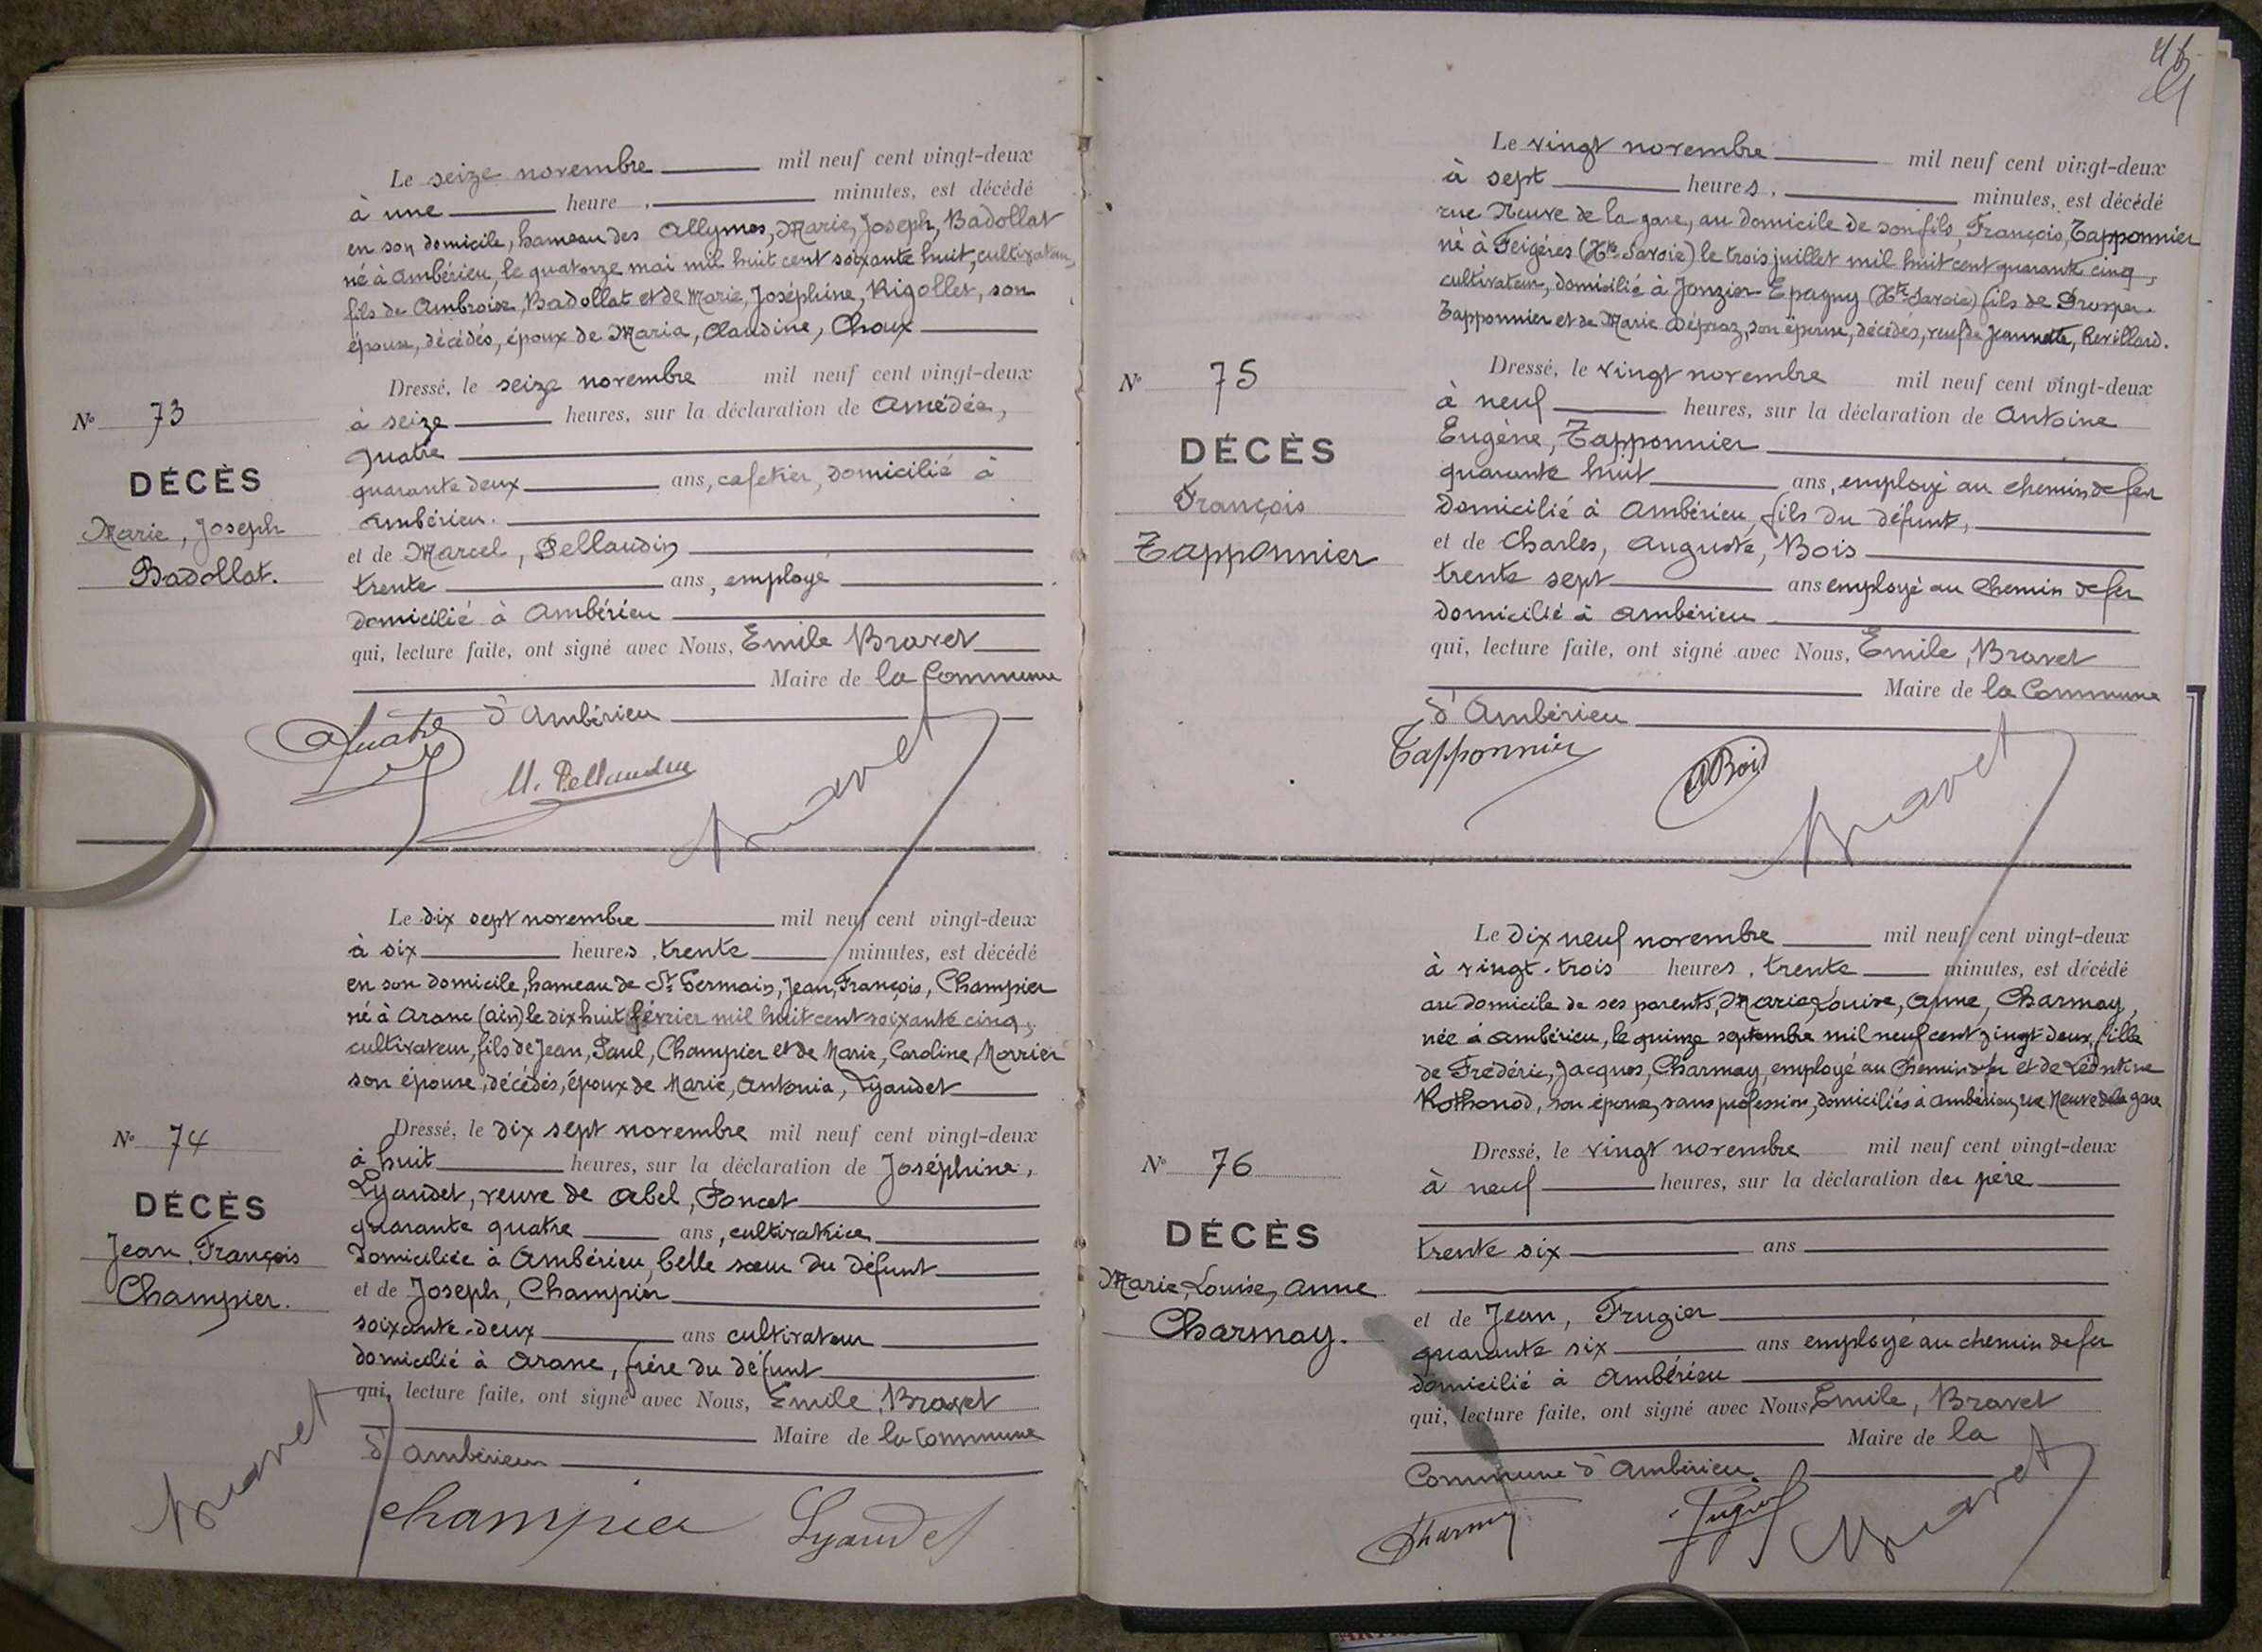 Le seize novembre mil neuf cent vingt-deux
à une heure, minutes, est décédé
en son domicile, hameau des Allymes, Marie, Joseph, Badollat
né à Ambérieu, le quatorze mai mil huit cent soixante huit, cultivateur,
fils de Ambroise, Badollat et de Marie, Joséphine, Rigollet, son
épouse, décédés, époux de Maria, Claudine, Choux
Dressé, le seize novembre mil neuf cent vingt-deux
à seize heures, sur la déclaration de Amédée,
Quatre
quarante deux ans, cafetier, domicilié à
Ambérieu.
et de Marcel, Pellaudin
trente ans, employé
domicilié à Ambérieu
qui, lecture faite, ont signé avec Nous, Emile Bravet
Maire de la Commune
d'Ambérieu
N° 73
DÉCÈS
Marie, Joseph
Badollat.
Quatre
M. Pellaudin
Bravet
Le dix sept novembre mil neuf cent vingt-deux
à six heures, trente minutes, est décédé
en son domicile, hameau de St Germain, Jean, François, Champier
né à Aranc (Ain) le dix huit février mil huit cent soixante cinq,
cultivateur, fils de Jean, Paul, Champier et de Marie, Caroline, Morrier
son épouse, décédés, époux de Marie, Antonia, Lyaudet
Dressé, le dix sept novembre mil neuf cent vingt-deux
à huit heures, sur la déclaration de Joséphine,
Lyaudet, veuve de Abel, Poncet
quarante quatre ans, cultivatrice
domiciliée à Ambérieu, belle sœur du défunt
et de Joseph, Champier
soixante-deux ans cultivateur
domicilié à Aranc, frère du défunt
qui, lecture faite, ont signé avec Nous, Emile, Bravet
Maire de la Commune
d'Ambérieu
N° 74
DÉCÈS
Jean, François
Champier.
Bravet
Champier
Lyaudet
Le vingt novembre mil neuf cent vingt-deux
à sept heures, minutes, est décédé
rue Neuve de la gare, au domicile de son fils, François, Tapponnier
né à Feigères (Hte Savoie) le trois juillet mil huit cent quarante cinq,
cultivateur, domicilié à Jonzier Epagny (Hte Savoie) fils de Prosper
Tapponnier et de Marie Dépraz, son épouse, décédés, veuf de Jeannette, Revillard.
Dressé, le vingt novembre mil neuf cent vingt-deux
à neuf heures, sur la déclaration de Antoine
Eugène, Tapponnier
quarante huit ans, employé au chemin de fer
domicilié à Ambérieu, fils du défunt,
et de Charles, Auguste, Bois
trente sept ans employé au chemin de fer
domicilié à Ambérieu
qui, lecture faite, ont signé avec Nous, Emile, Bravet
Maire de la Commune
d'Ambérieu
N° 75
DÉCÈS
François
Tapponnier
Tapponnier
ABois
Bravet
Le dix neuf novembre mil neuf cent vingt-deux
à vingt-trois heures, trente minutes, est décédé
au domicile de ses parents, Marie, Louise, Anne, Charmay,
née à Ambérieu, le quinze septembre mil neuf cent vingt-deux, fille
de Frédéric, Jacques, Charmay, employé au chemin de fer et de Léontine
Rothonod, son épouse, sans profession, domiciliés à Ambérieu, rue Neuve de la gare
Dressé, le vingt novembre mil neuf cent vingt-deux
à neuf heures, sur la déclaration du père
trente six ans
et de Jean, Frugier
quarante six ans employé au chemin de fer
domicilié à Ambérieu
qui, lecture faite, ont signé avec Nous, Emile, Bravet
Maire de la
Commune d'Ambérieu.
N° 76
DÉCÈS
Marie, Louise, Anne
Charmay.
Charmay
Bravet